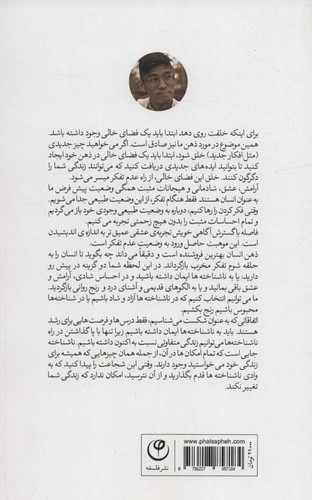 برای اینکه خلقت روی دهد ابتدا باید یک فضای خالی وجود داشته باشد.
همین موضوع در مورد ذهن ما نیز صادق است. اگر می خواهید چیز جدیدی
(مثل افکار جدید) خلق شود، ابتدا باید یک فضای خالی در ذهن خود ایجاد
کنید تا بتوانید ایده‌های جدیدی دریافت کنید که می‌توانند زندگی شما را
دگرگون کنند. خلق این فضای خالی، از راه عدم تفکر میسر می شود.
آرامش، عشق، شادمانی و هیجانات مثبت همگی وضعیت پیش فرض ما
به عنوان انسان هستند. فقط هنگام تفکر، از این وضعیت طبیعی جدا می‌شویم.
وقتی فکر کردن را رها کنیم، دوباره به وضعیت طبیعی وجودی خود باز می گردیم
و تمام احساسات مثبت را بدون هیچ زحمتی تجربه می کنیم.
فاصله با گسترش آگاهی خویش تجربه‌ی عشقی عمیق تر به اندازه ی اندیشیدن
است. این موهبت حاصل ورود به وضعیت عدم تفکر است.
ذهن انسان بهترین فروشنده است و دقیقاً می داند چه بگوید تا انسان را به
حلقه شوم تفکر مخرب بازگرداند. در این لحظه شما دو گزینه در پیش رو
دارید، یا به ناشناخته ها ایمان داشته باشید و در احساس شادی، آرامش و
عشق باقی بمانید و یا به الگوهای قدیمی و آشنای درد و رنج روانی بازگردید.
ما می توانیم انتخاب کنیم که در ناشناخته ها آزاد و شاد باشیم یا در شناخته‌ها
محبوس باشیم رنج بکشیم.
اتفاقاتی که به عنوان شکست می شناسیم، فقط درس‌ها و فرصت‌هایی برای رشد
هستند. باید به ناشناخته ها ایمان داشته باشیم زیرا تنها با پا گذاشتن در راه
ناشناخته ها می‌توانیم زندگی متفاوتی نسبت به اکنون داشته باشیم. ناشناخته
جایی است که تمام امکان ها در آن، از جمله همان چیزهایی که همیشه برای
زندگی خود می خواستید وجود دارند. وقتی این شجاعت را پیدا کنید که به
وادی ناشناخته ها قدم بگذارید و از آن نترسید، امکان ندارد که زندگی شما
تغییر نکند.
www.phalsapheh.com
نشر فلسفه